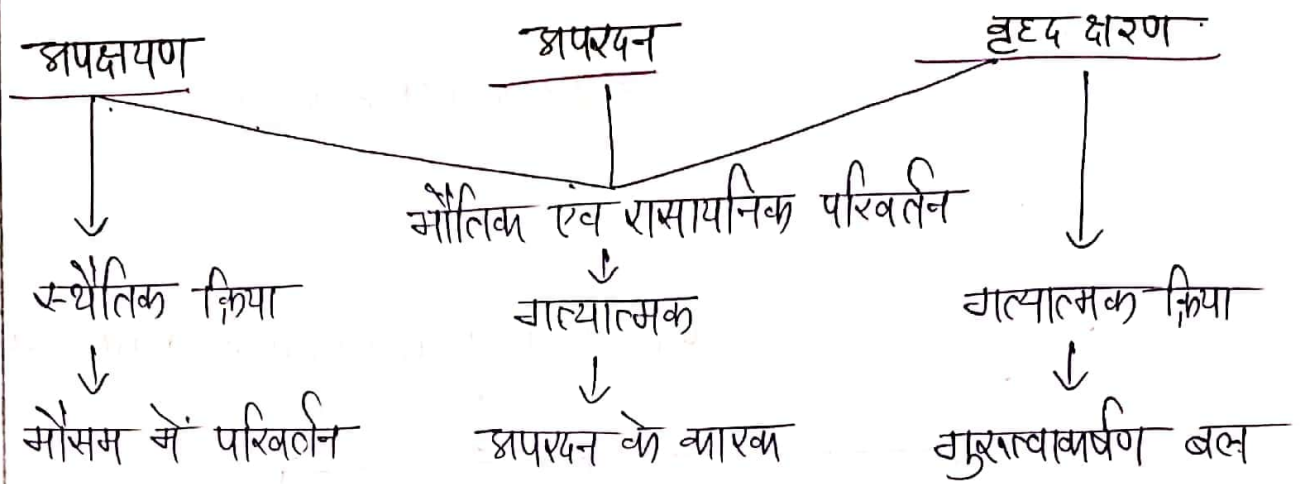 अपक्षयण अपरदन वृहद क्षरण
भौतिक एवं रासायनिक परिवर्तन
स्थैतिक क्रिया गत्यात्मक गत्यात्मक क्रिया
मौसम में परिवर्तन अपरदन के कारक गुरुत्वाकर्षण बल